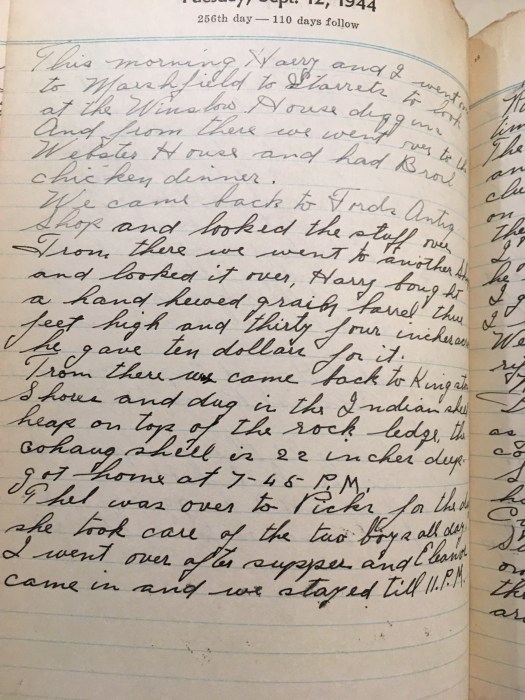 Tuesday, Sept. 12, 1944
256th day — 110 days follow
This morning Harry and I went on
to Marshfield to Starrets to look
at the Winslow House diggins
And from there we went over to the
Webster House and had Broil
chicken dinner.
We came back to Fords Antiq
Shop and looked the stuff over
From there we went to another
and looked it over, Harry bought
a hand hewed grain barrel three
feet high and thirty four inches
he gave ten dollars for it.
From there we came back to Kingston
Shores and dug in the Indian shell
heap on top of the rock ledge, the
cohaug shell is 22 inches deep.
got home at 7-45 P.M.
Phel was over to Picks for the
she took care of the two boys all day.
I went over after supper and Eleanor
came in and we stayed till 11. P.M.